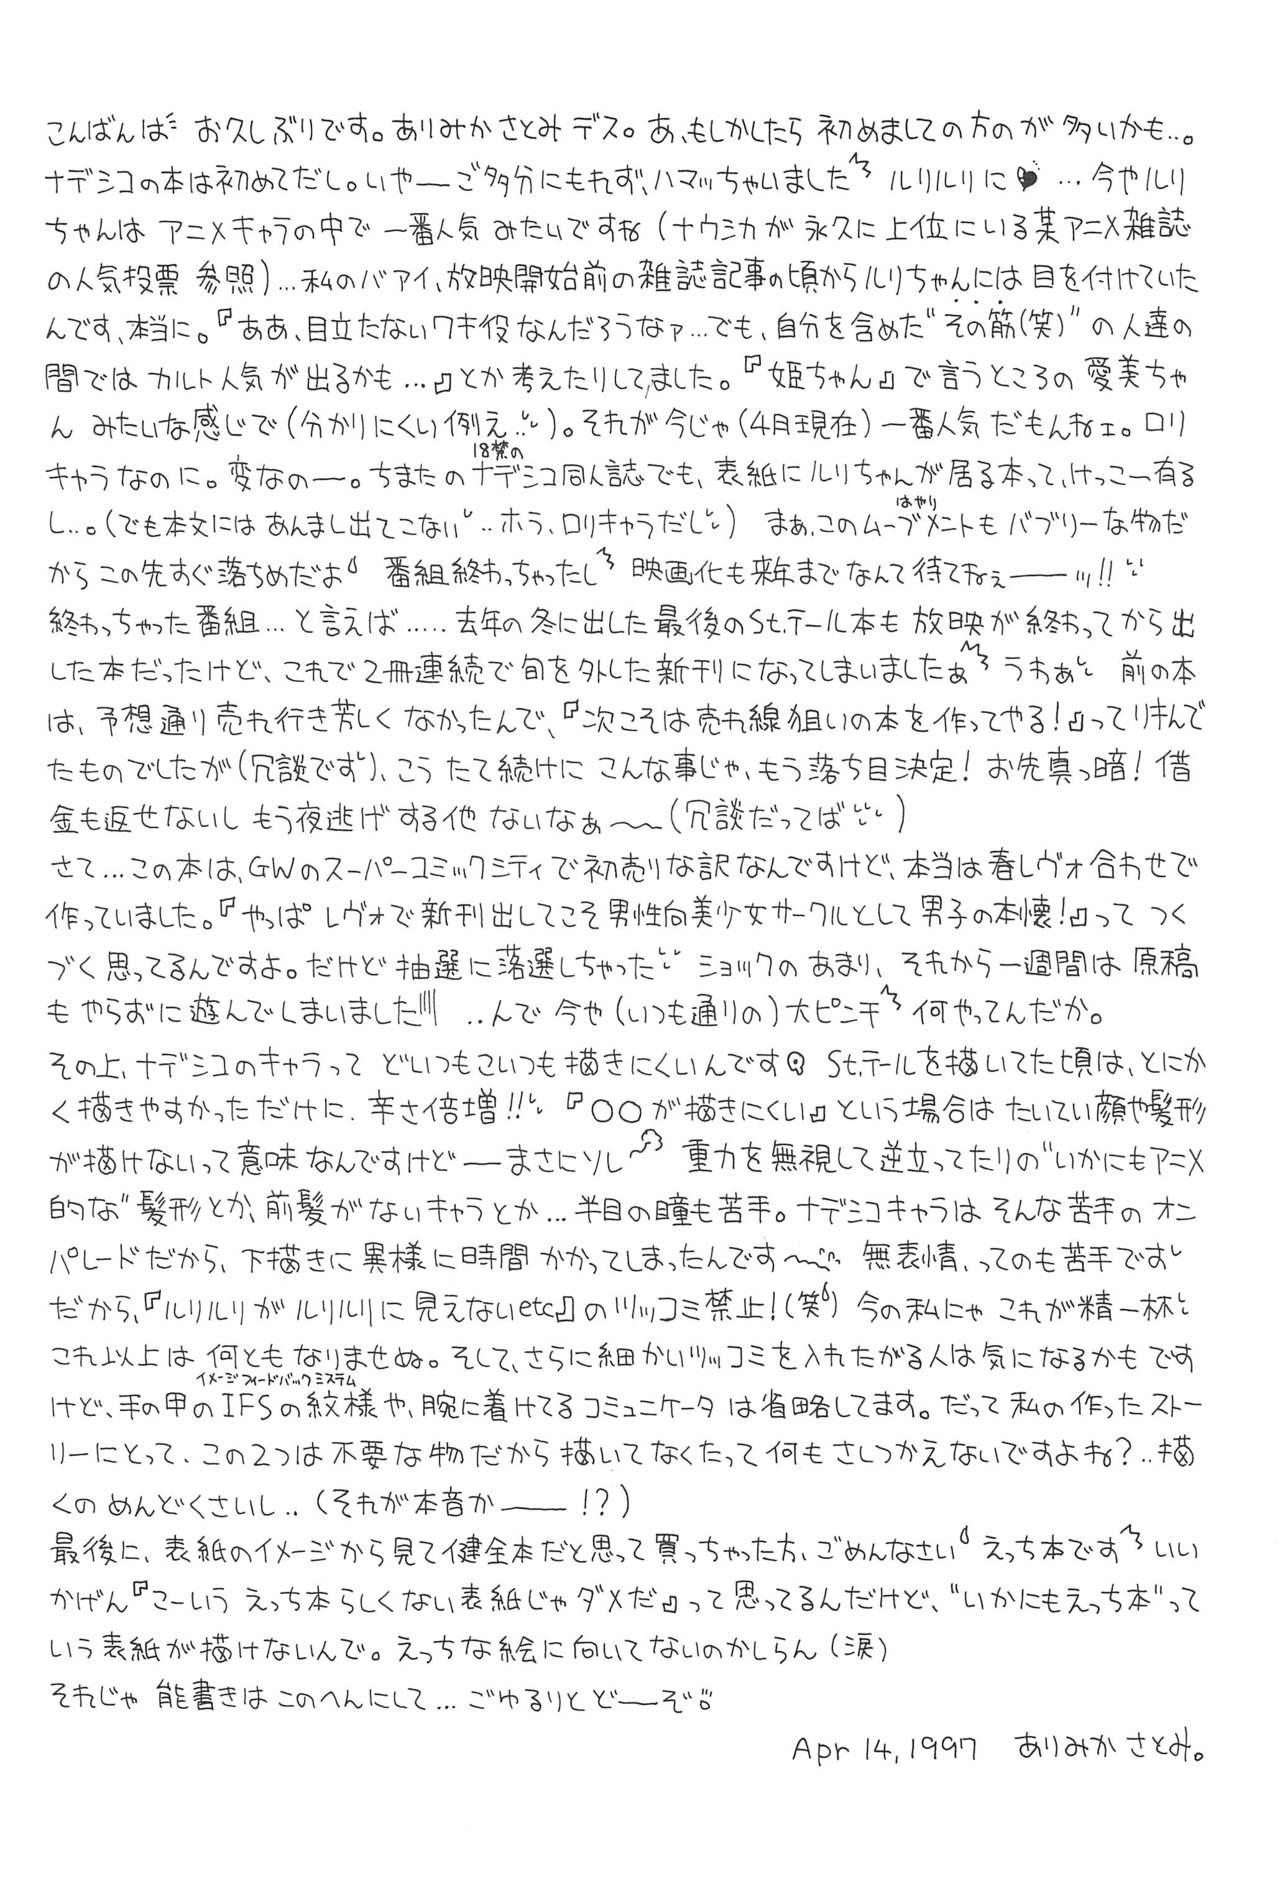 こんばんは お久しぶりです。ありみかさとみデス。あ、もしかしたら 初めましての方のが多いかも..。
ナデシコの本は初めてだし。いやーご多分にもれず、ハマッちゃいました ルリルリに♥ …今やルリ
ちゃんは アニメキャラの中で 一番人気 みたいですね (ナウシカが 永久に上位にいる某アニメ雑誌
の人気投票 参照)…私のバアイ、放映開始前の雑誌記事の頃からルリちゃんには 目を付けていた
んです、本当に。『ああ、目立たないワキ役なんだろうなァ…でも、自分を含めた"その筋(笑)"の人達の
間では カルト人気が出るかも…』とか考えたりしてました。『姫ちゃん』で言うところの 愛美ちゃ
ん みたいな感じで(分かりにくい例え..)。それが今じゃ(4月現在)一番人気だもんねェ。ロリ
キャラなのに。変なのー。ちまたの18禁のナデシコ同人誌でも、表紙にルリちゃんが居る本って、けっこー有る
し..。(でも本文には あんまし出てこない ..ホラ、ロリキャラだし) まぁ、このムーブメントはやりも バブリーな物だ
から この先すぐ落ちめだよ 番組終わっちゃったし 映画化も来年までなんて待てねぇーーッ!!
終わっちゃった番組…と言えば.....去年の冬に出した最後のSt.テール本も 放映が終わってから出
した本だったけど、これで2冊連続で旬を外した新刊になってしまいましたぁ うわぁ 前の本
は、予想通り売れ行き芳しくなかったんで、『次こそは売れ線狙いの本を作ってやる!』ってリキんで
たものでしたが(冗談です)、こう たて続けに こんな事じゃ、もう落ち目決定! お先真っ暗! 借
金も返せないし もう夜逃げする他 ないなぁ〜(冗談だってば)
さて…この本は、GWのスーパーコミックシティで初売りな訳なんですけど、本当は春レヴォ合わせで
作っていました。『やっぱ レヴォで新刊出してこそ男性向美少女サークルとして男子の本懐!』って つく
づく思ってるんですよ。だけど抽選に落選しちゃった ショックの あまり、それから一週間は 原稿
も やらずに 遊んでしまいました ..んで 今や(いつも通りの)大ピンチ 何やってんだか。
その上、ナデシコのキャラって どいつもこいつも描きにくいんです St.テールを描いてた頃は、とにか
く描きやすかっただけに、辛さ倍増!! 『○○が描きにくい』という場合は たいてい顔や髪形
が描けないって意味なんですけどーまさにソレ 重力を無視して逆立ってたりの"いかにもアニメ
的な"髪形とか、前髪がないキャラとか…半目の瞳も苦手。ナデシコキャラは そんな苦手の オン
パレードだから、下描きに 異様に時間 かかってしまったんです〜 無表情、ってのも苦手です
だから、『ルリルリが ルリルリに 見えないetc』のツッコミ禁止!(笑) 今の私にゃ これが精一杯
これ以上は 何とも なりませぬ。そして、さらに細かいツッコミを入れたがる人は気になるかも です
けど、手の甲のIFSイメージフィードバックシステムの紋様や、腕に着けてるコミュニケータ は省略してます。だって私の作ったストー
リーにとって、この2つは不要な物だから描いてなくたって何もさしつかえないですよね?..描
くの めんどくさいし.. (それが本音かーー!?)
最後に、表紙のイメージから見て健全本だと思って買っちゃった方、ごめんなさい えっち本です いい
かげん『こーいう えっち本らしくない表紙じゃダメだ』って思ってるんだけど、"いかにもえっち本"って
いう表紙が描けないんで。えっちな絵に向いてないのかしらん(涙)
それじゃ 能書きは このへんにして…ごゆるりと どーぞ
Apr 14,1997 ありみかさとみ。